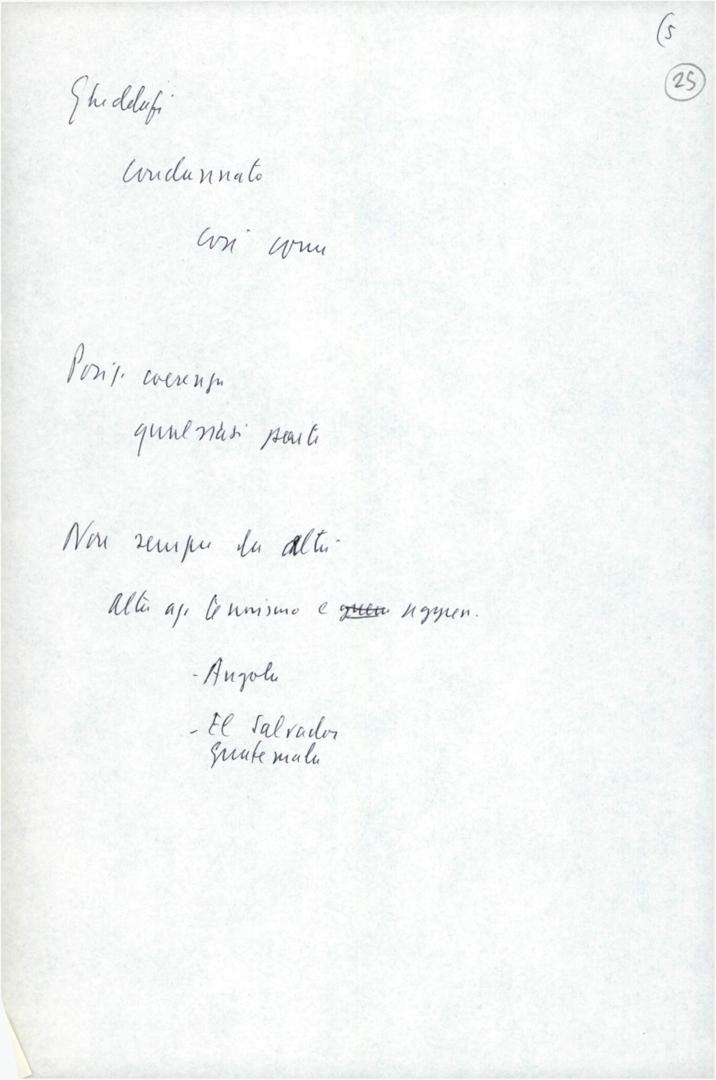 (5
25
Gheddafi
condannato
così come
Posiz. coerenza
qualsiasi parte
Non sempre da altri
Altri agg. terrorismo e guerra
- Angola
- El Salvador
Guatemala